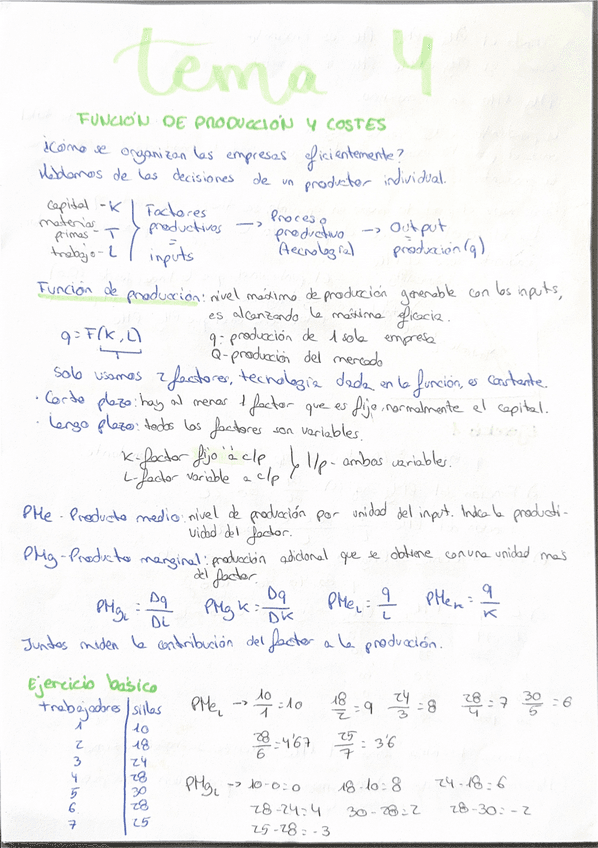 tema 4
FUNCIÓN DE PRODUCCIÓN Y COSTES
¿Cómo se organizan las empresas eficientemente?
Hablamos de las decisiones de un productor individual.
capital - K
materias primas - T
trabajo - L
Factores productivos = inputs → Proceso productivo (tecnología) → Output = producción (q)
Función de producción: nivel máximo de producción generable con los inputs,
es alcanzando la máxima eficacia.
q = F(K, L)
q - producción de 1 sola empresa
Q - producción del mercado
Solo usamos 2 factores, tecnología dada en la función, es constante.
· Corto plazo: hay al menos 1 factor que es fijo, normalmente el capital.
· Largo plazo: todos los factores son variables.
K - factor fijo a c/p
L - factor variable a c/p
l/p - ambas variables.
PMe - Producto medio: nivel de producción por unidad del input. Indica la producti-
vidad del factor.
PMg - Producto marginal: producción adicional que se obtiene con una unidad mas
del factor.
PMg L = Dq/DL PMg K = Dq/DK PMe L = q/L PMe K = q/K
Juntos miden la contribución del factor a la producción.
Ejercicio basico
trabajadores | sillas
1 | 10
2 | 18
3 | 24
4 | 28
5 | 30
6 | 28
7 | 25
PMe L → 10/1 = 10 18/2 = 9 24/3 = 8 28/4 = 7 30/5 = 6
28/6 = 4'67 25/7 = 3'6
PMg L → 10-0 = 0 18-10 = 8 24-18 = 6
28-24 = 4 30-28 = 2 28-30 = -2
25-28 = -3